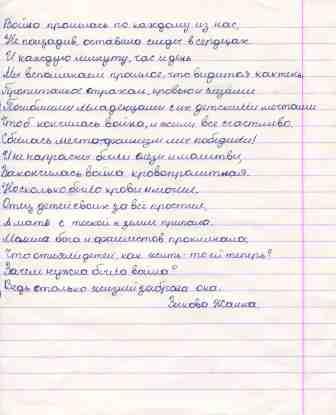 Война прошлась по каждому из нас,
Не пощадив, оставила следы в сердцах
И каждую минуту, час и день
Мы вспоминаем прошлое, что видится как тень
Пропитаное страхом, кровью
Погибшими младенцами с их детскими мечтами
Чтоб кончилась война, и жили все счастливо.
Сбылась мечта-фашизм мы победили!
И не напрасно были и молитвы,
Закончилась война кровопролитная.
Но сколько было крови и мочи.
Отец детей своих за всё простил,
А мать с тоской к земли припала.
Молила бога и фашистов проклинала,
Что отняли детей, как жить-то ей теперь?
Зачем нужна была война?
Ведь столько жизней забрала она.
Зыкова Жанна.